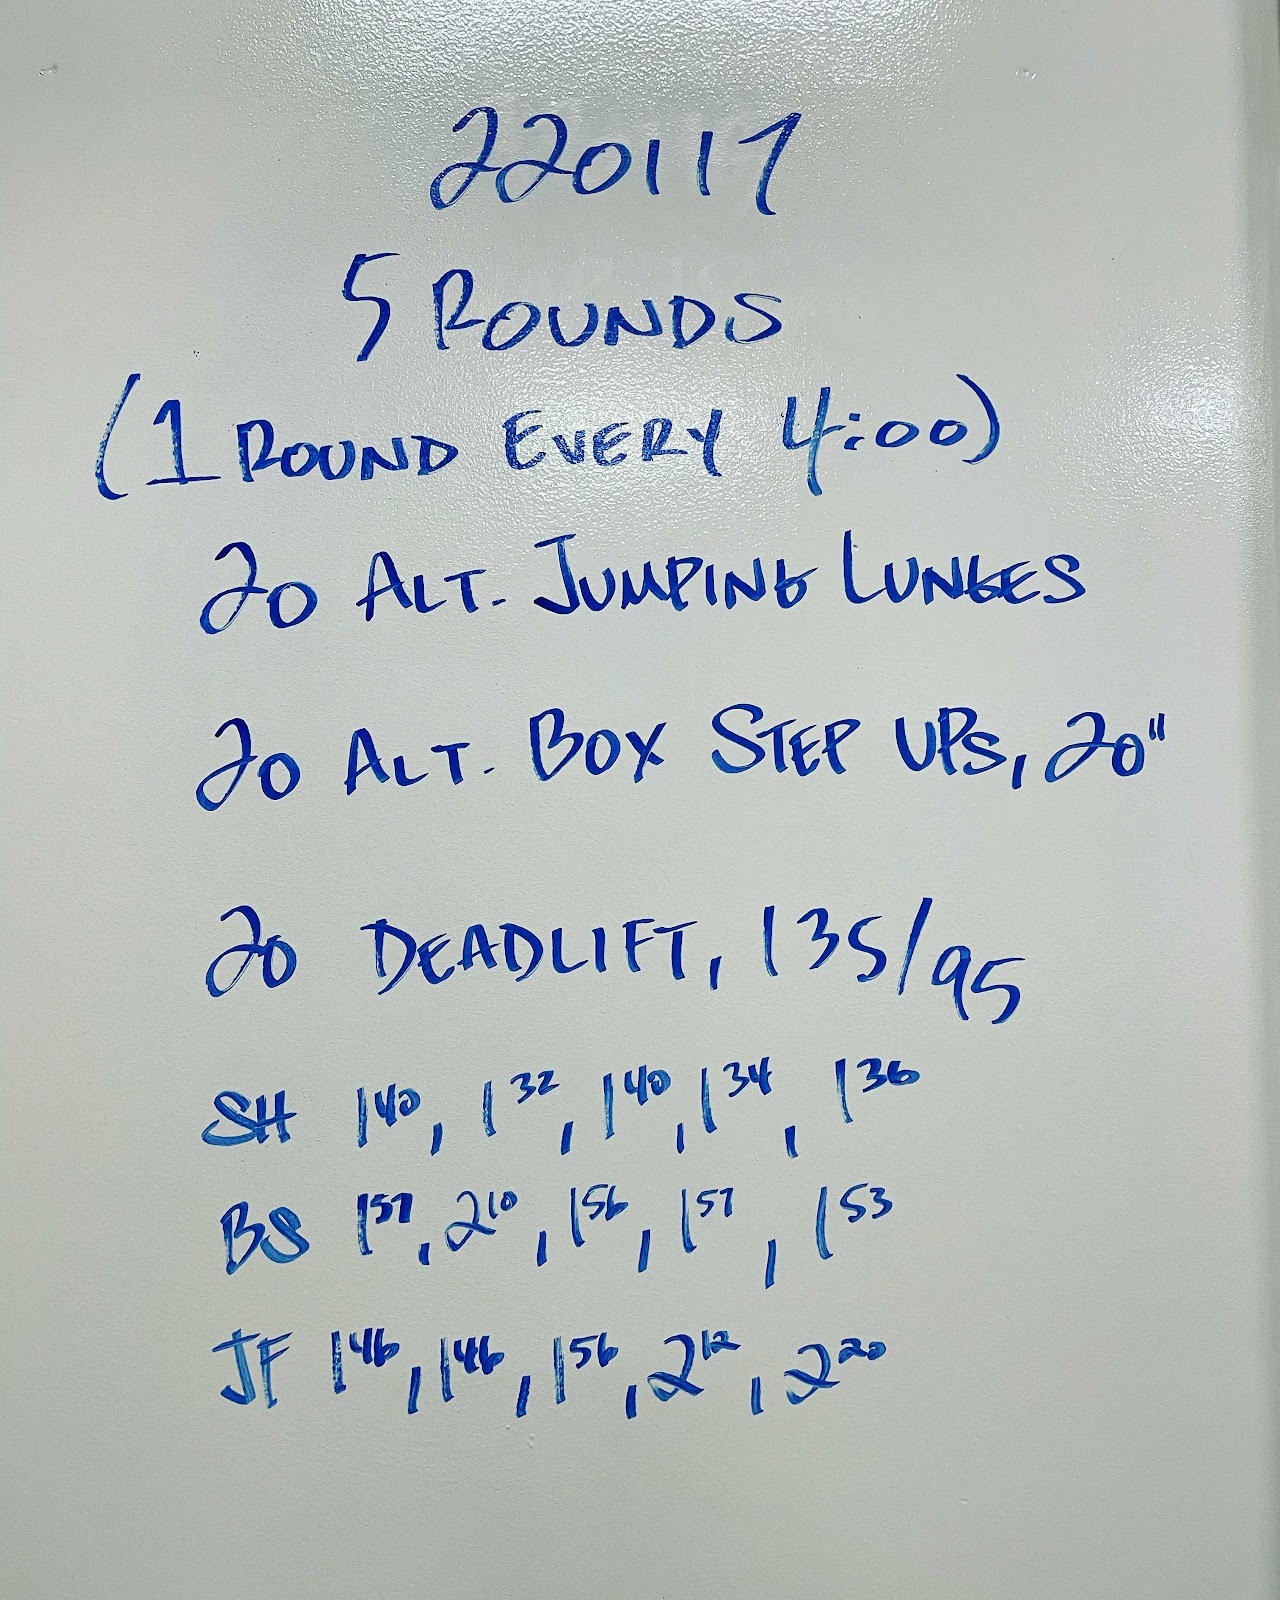 220117
5 ROUNDS
(1 ROUND EVERY 4:00)
20 ALT. JUMPING LUNGES
20 ALT. BOX STEP UPS, 20"
20 DEADLIFT, 135/95
SH 1⁴⁰, 1³², 1⁴⁰, 1³⁴, 1³⁶
BS 1⁵⁷, 2¹⁰, 1⁵⁶, 1⁵⁷, 1⁵³
JF 1⁴⁶, 1⁴⁶, 1⁵⁶, 2¹², 2²⁰